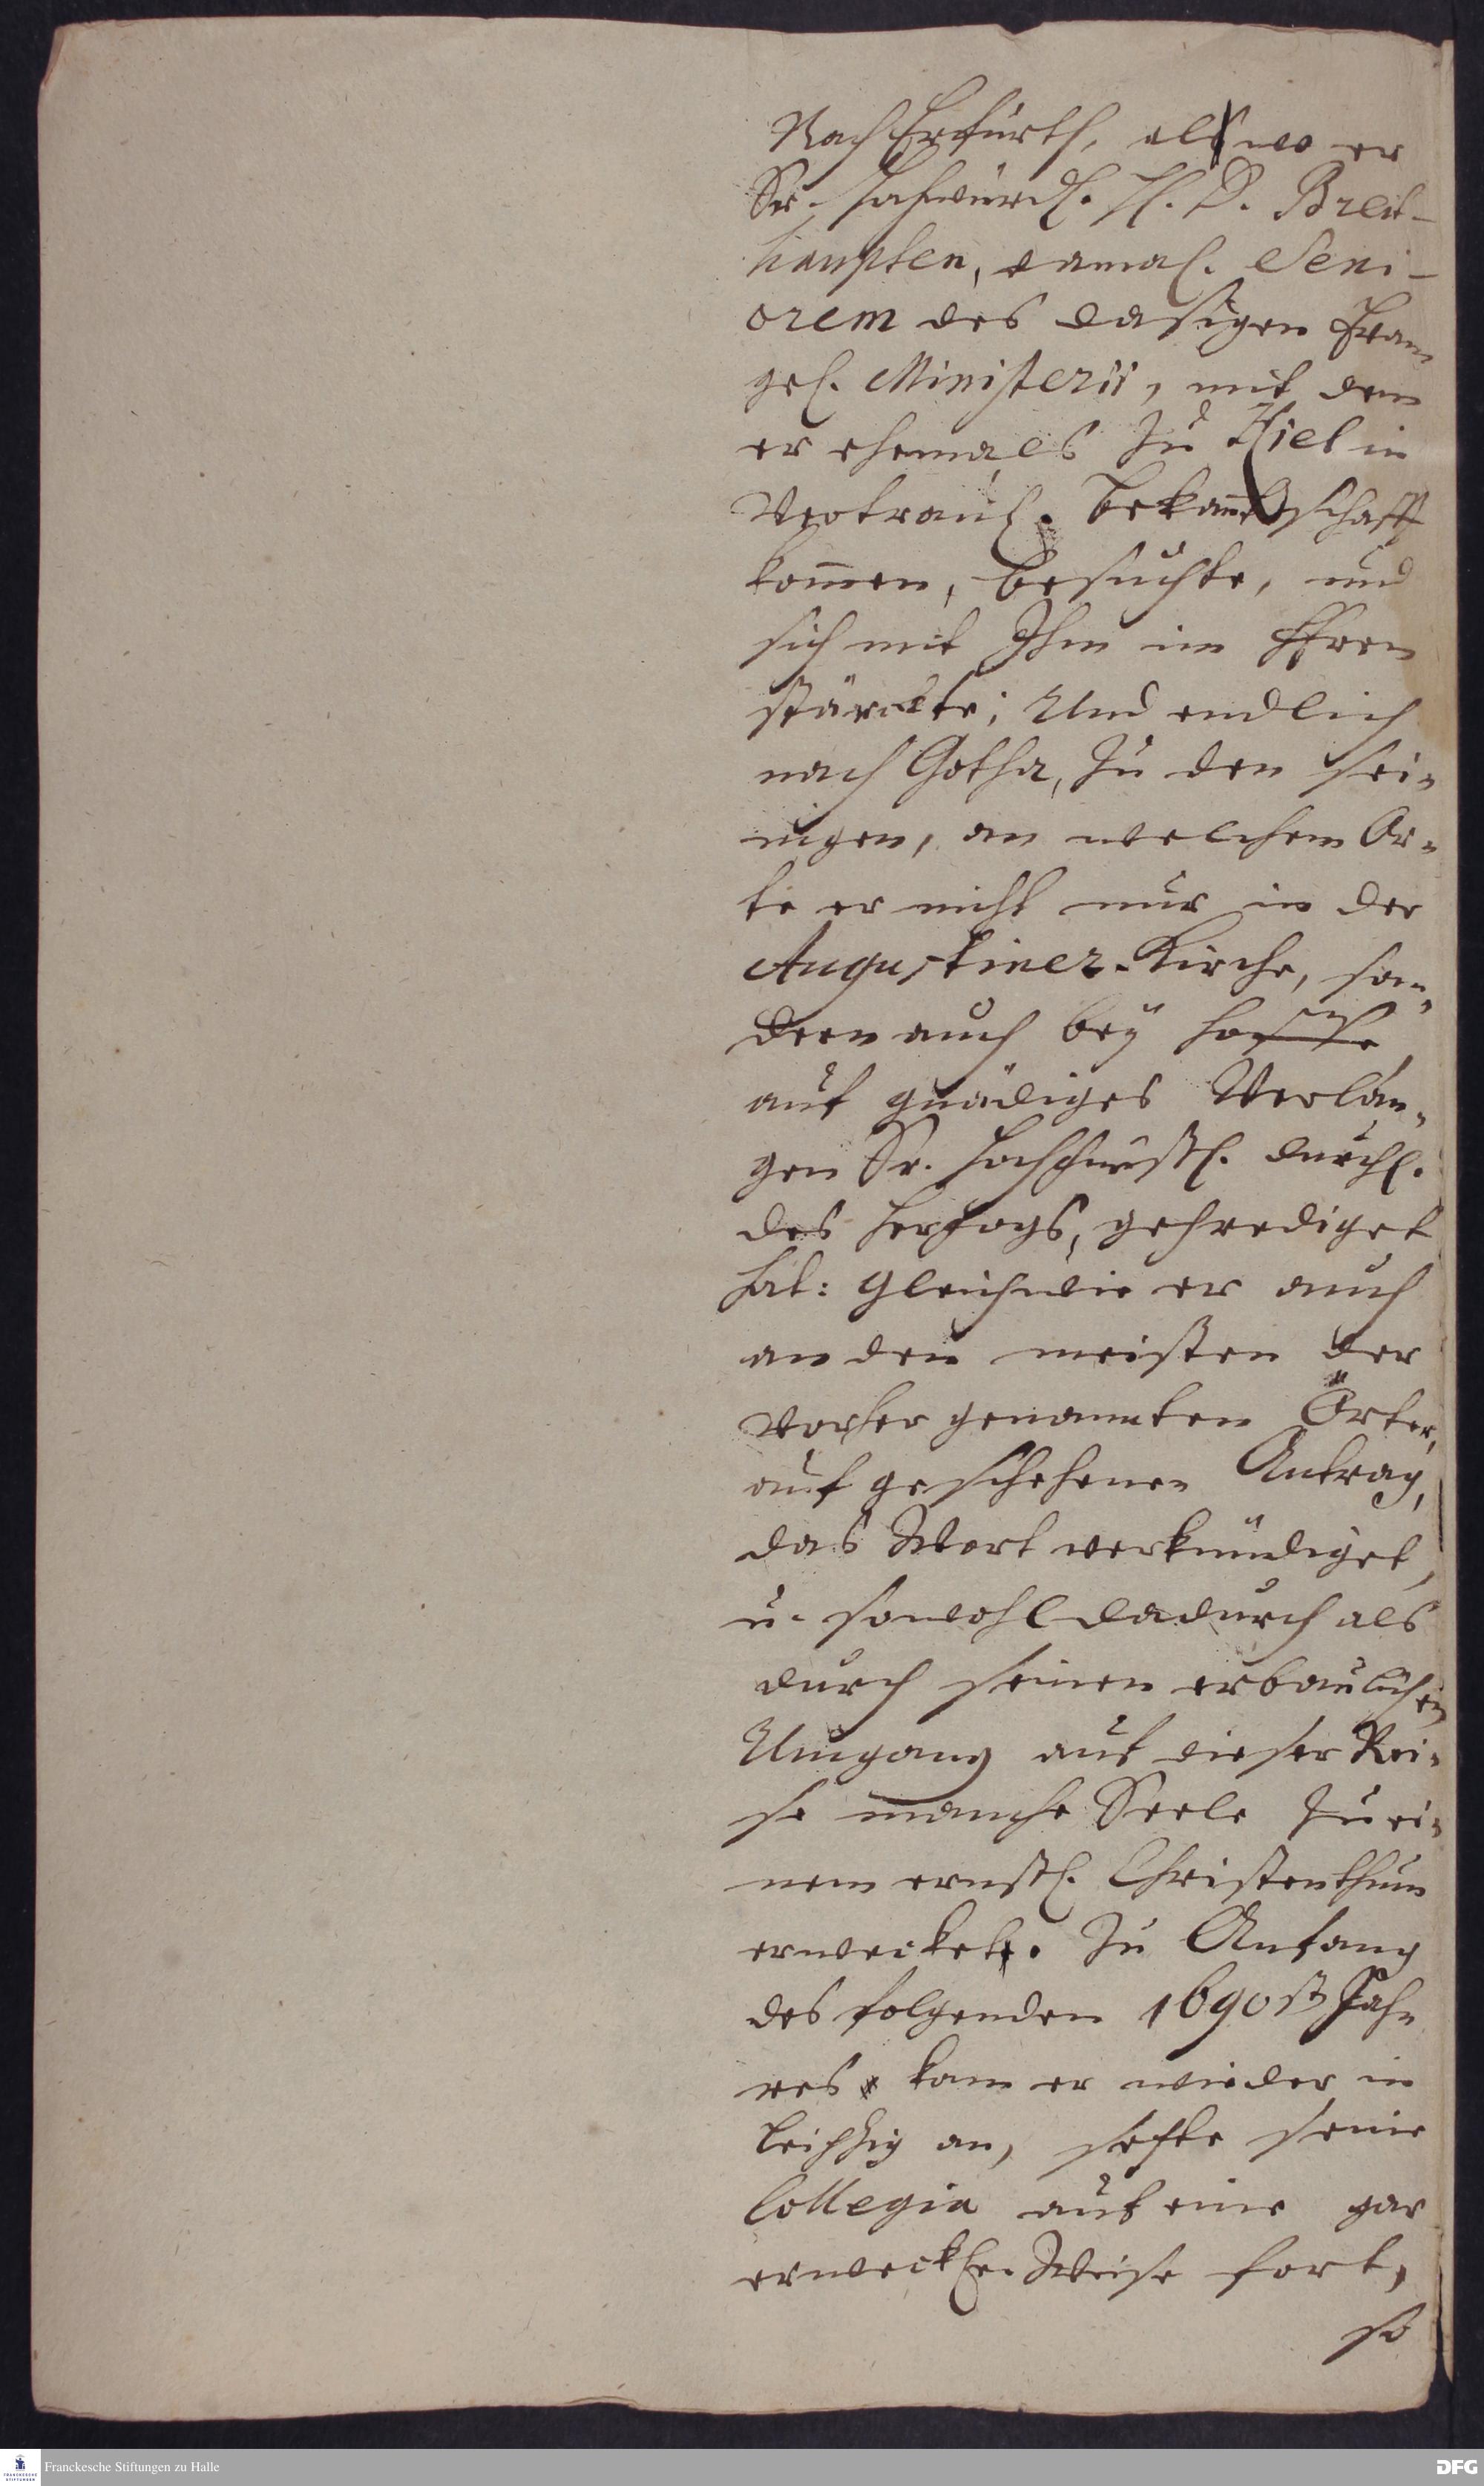 Nach Erfurth, alwo er
Sr. Hochwürdl. H. D. Breit-
haupten, damal. Seni-
orem des dasigen Evan
gel. Ministerii, mit dem
er ehemals zu Kiel in
Vertraul. bekantschafft
kom̄en, besuchte, und
sich mit Ihm im HErrn
stärckte; Und endlich
nach Gotha, zu den sei-
nigen, an welchem Or-
te er nicht nur in der
Augustiner-Kirche, son-
dern auch bey Hoffe
auf gnädiges Verlan-
gen Sr. Hochfürstl. Durchl.
des Hertzogs, geprediget
hat: Gleichwie er auch
an den meisten der
vorher genannten Örter,
auf geschehenen Antrag,
das Wort verkündiget,
u. sowohl dadurch als
durch seinen erbaulichen
Umgang auf dieser Rei-
se manche Seele zu ei-
nem ernstl. Christenthum
erwecket. Zu Anfang
des folgenden 1690st. Jah-
res kam er wieder in
Leipzig an, setzte seine
Collegia auf eine gar
erweckl. Weise fort,
so
Franckesche Stiftungen zu Halle
FRANCKESCHE STIFTUNGEN
DFG